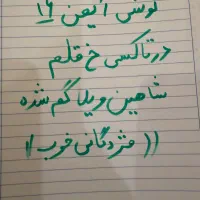 گوشی آیفن ۱۶
در تاکسی خ قلم
شاهین ویلا گم شده
(( مژدگانی خوب ))